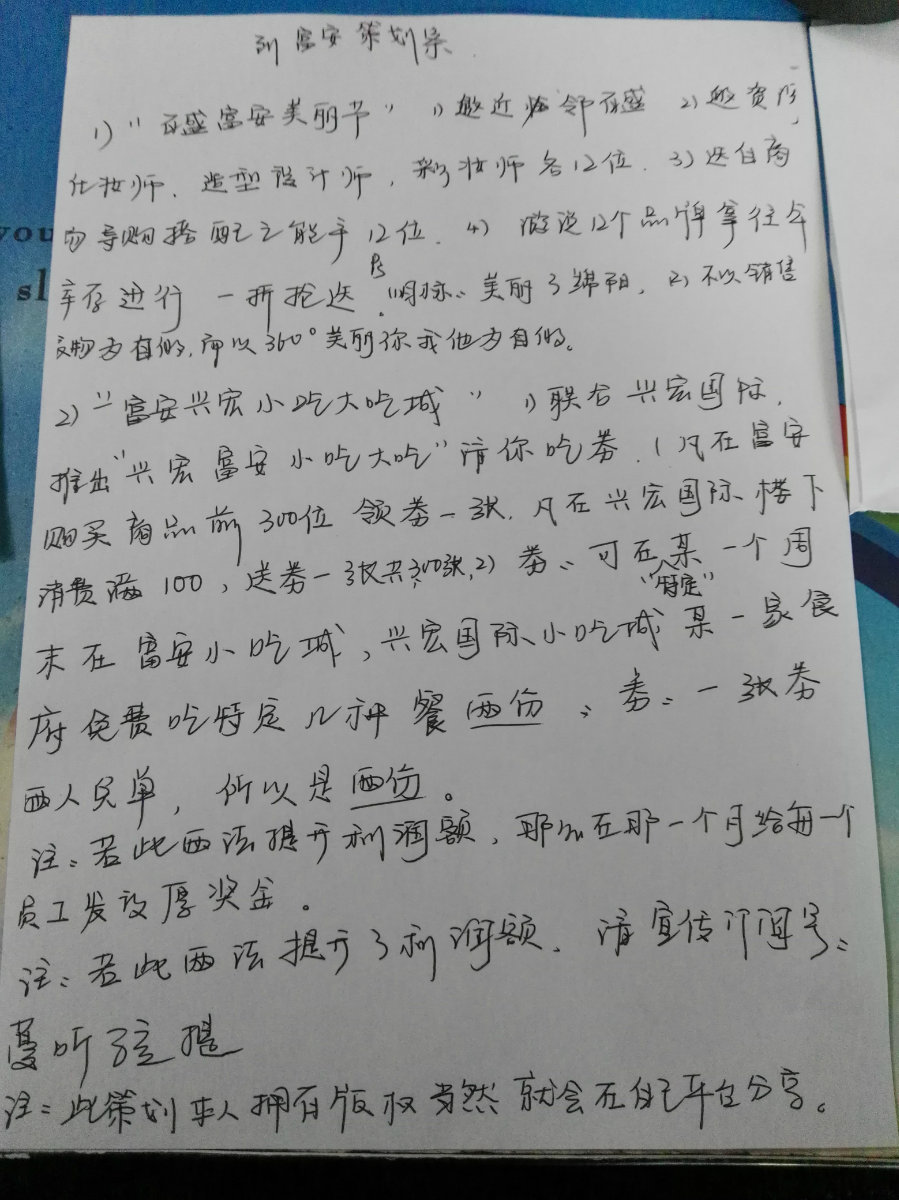 到富安策划案
1)“百盛富安美丽节” 1)邀近临邻百盛 2)邀资历
化妆师、造型设计师,彩妆师各12位. 3)送佳商
勿导购搭配之能手12位. 4) 游说12个品牌拿往年
库存进行一折抢送。
Ps
“目标”美丽了绵阳, 2)不以销售
实物为目的,而以360°美丽你我他为目的。
2)“富安兴宏小吃大吃城” 1)联合兴宏国际,
推出“兴宏富安小吃大吃”请你吃券.(凡在富安
购买商品前300位领券一张.凡在兴宏国际楼下
消费满100,送券一张共300张,2)券:可在某一个周
“特定”
末在富安小吃城,兴宏国际小吃城某一家食
府免费吃特定几种餐两份、券:一张券
两人免单,所以是两份。
注:若此两法提升利润额,那么在那一个月给每一个
员工发放厚奖金。
注:若此两法提升了利润额.请宣传订阅号:
蔓听弦提
注:此策划本人拥有版权当然就会在自己平台分享。
you
sl